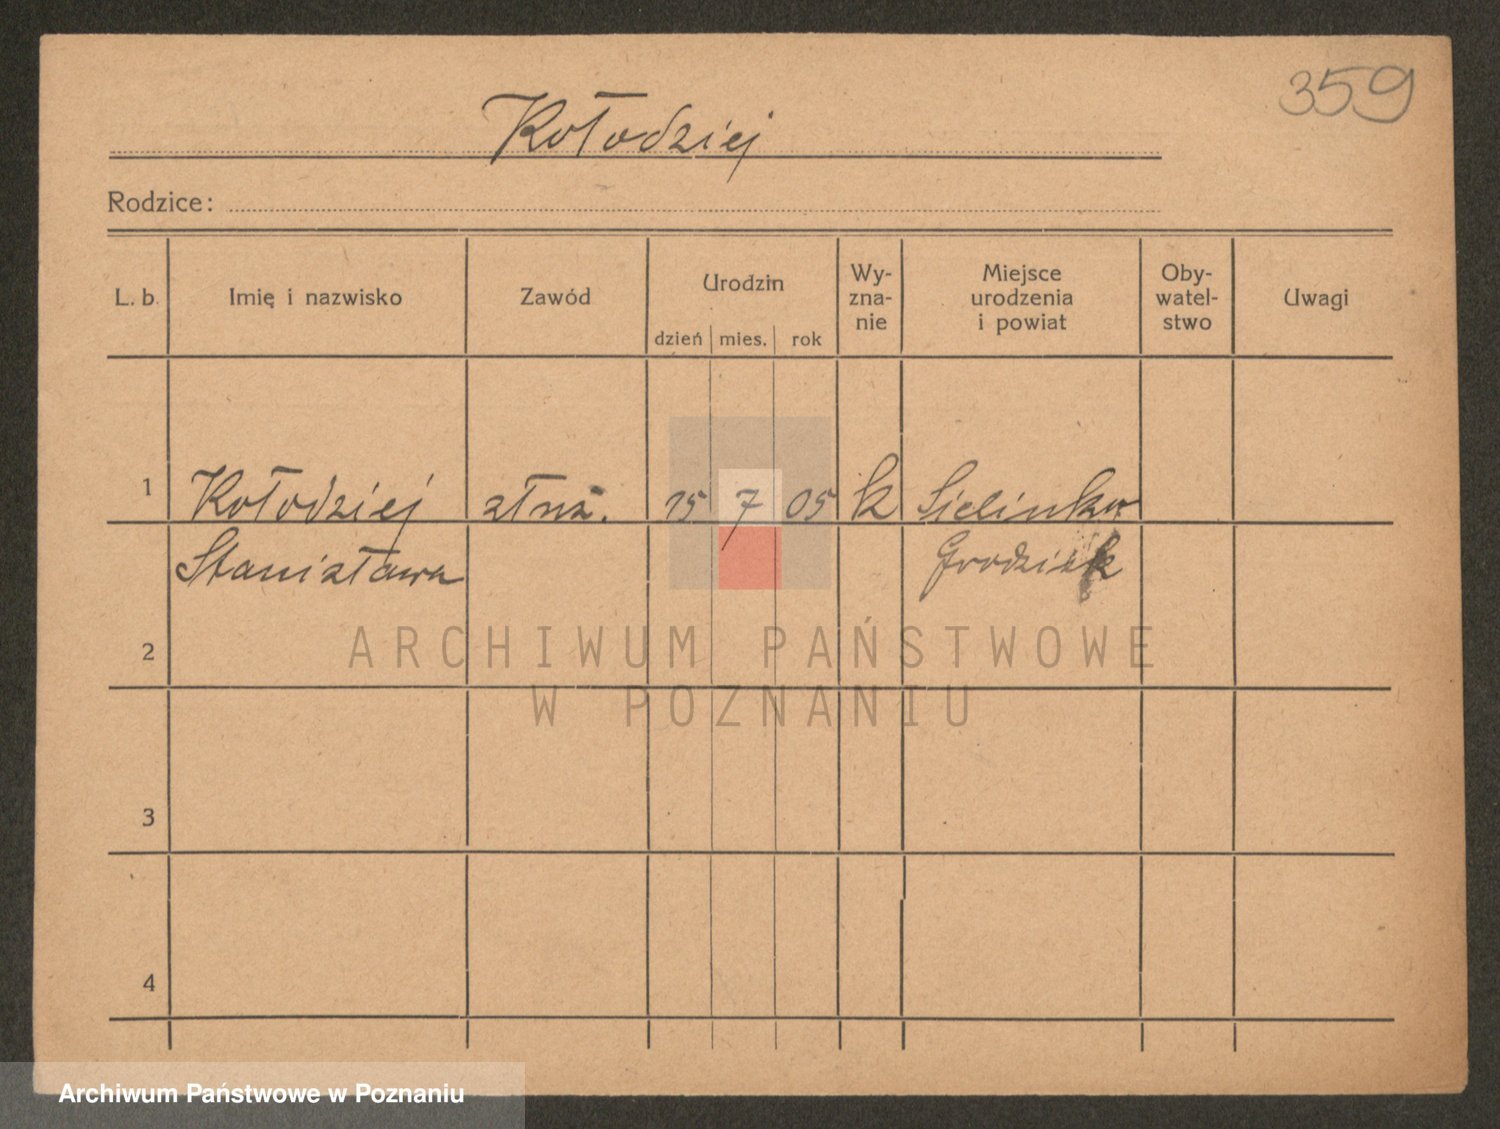 359
Kołodziej
Rodzice:
L. b. Imię i nazwisko Zawód Urodzin Wy-zna-nie Miejsce urodzenia i powiat Oby-watel-stwo Uwagi
dzień mies. rok
1 Kołodziej służ. 15 7 05 k Sielinko
Stanisława Grodzisk
2
3
4
ARCHIWUM PAŃSTWOWE
W POZNANIU
Archiwum Państwowe w Poznaniu